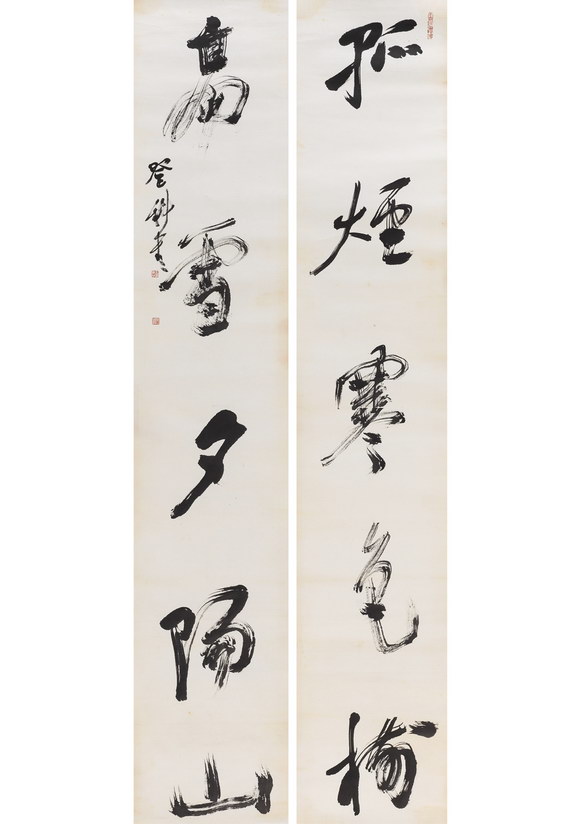 孤煙寒色樹
高雪夕陽山
登科書